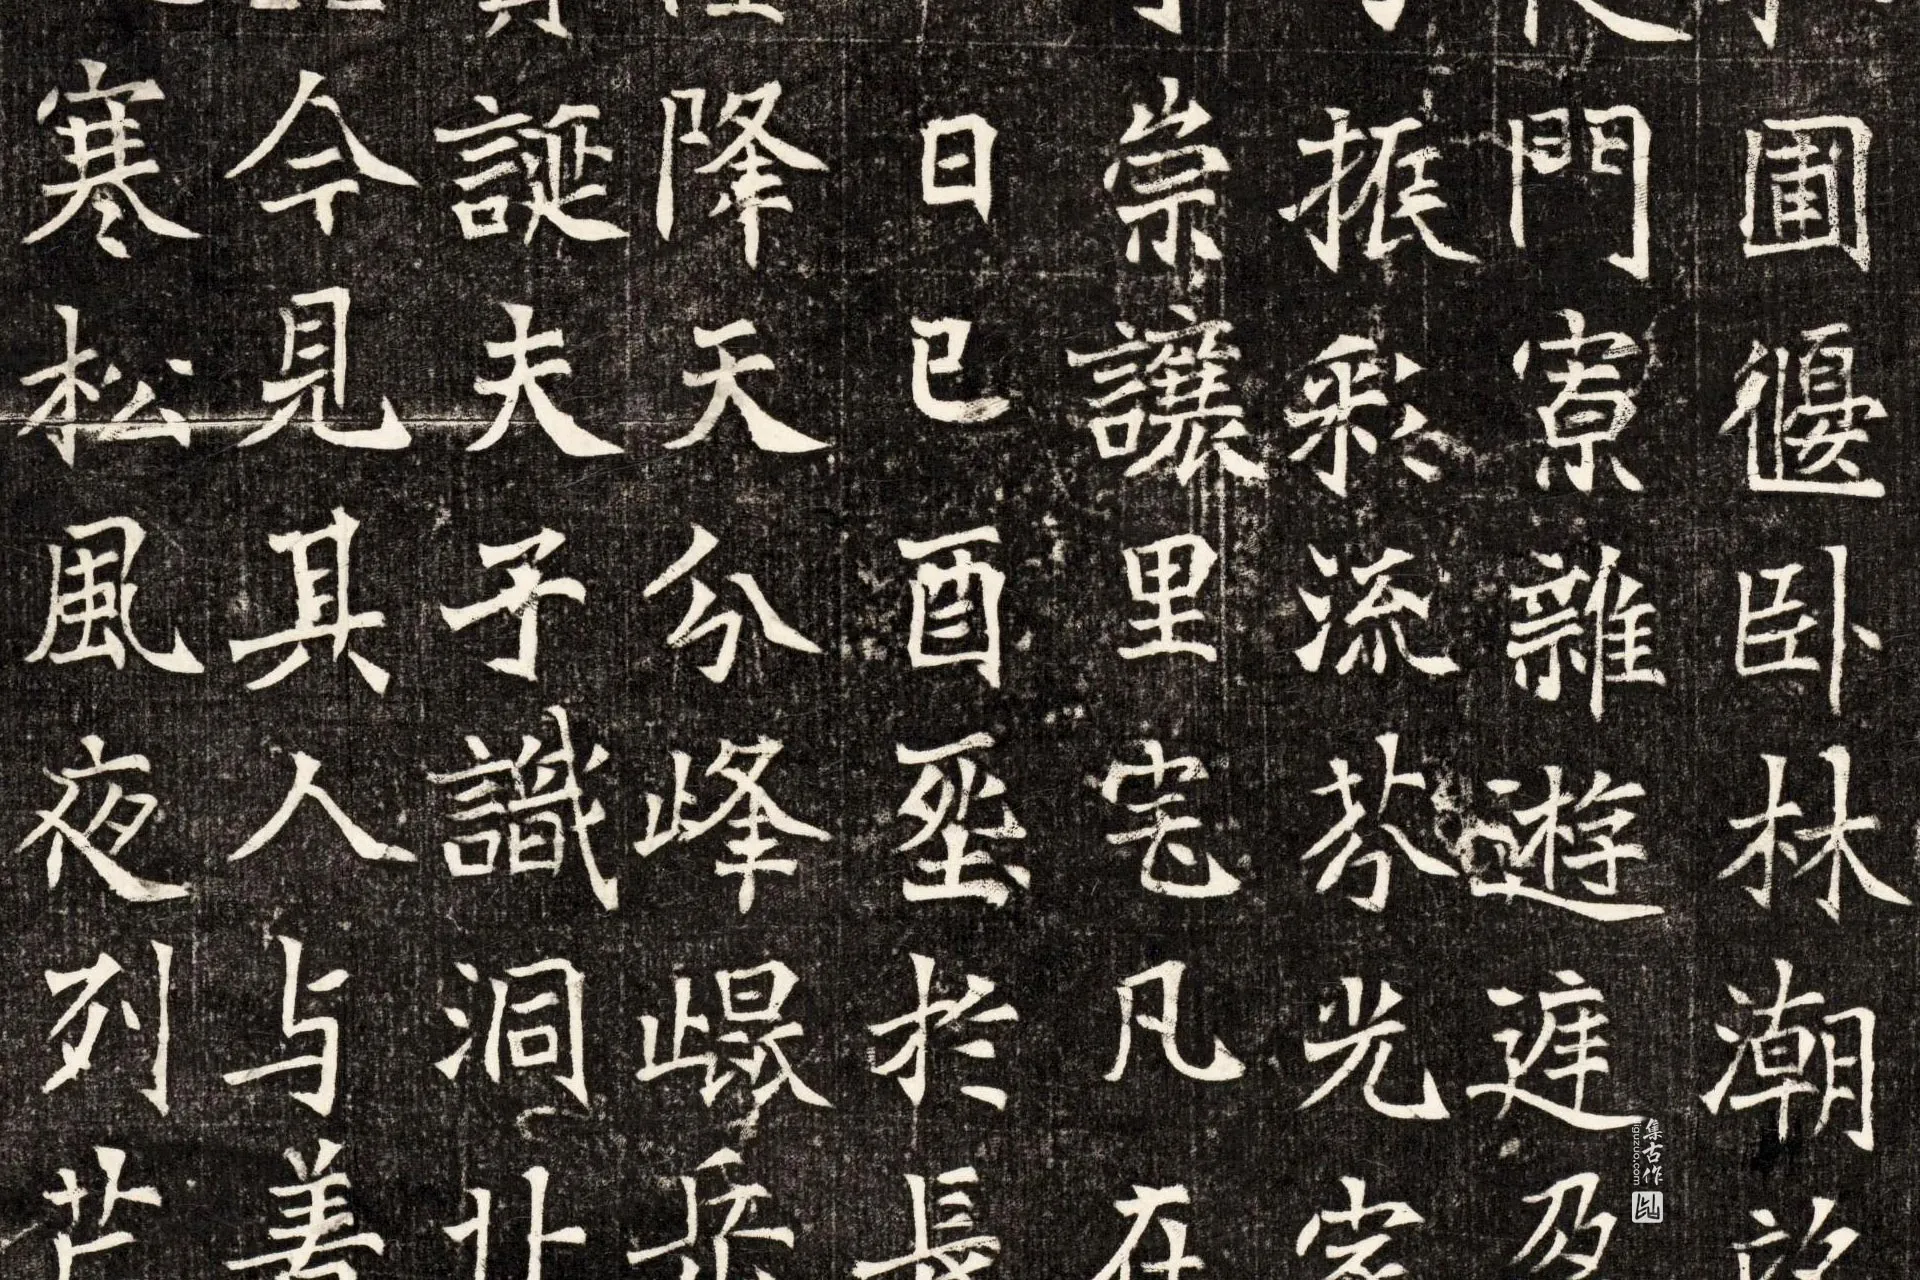 圃偃卧林潮
門寮雜遊
振彩流芬光
崇讓里宅凡在
日己酉於長
降天分峰崐岳
誕夫子識洞
今見其人与善
寒松風夜列芒
集古作
jiguzuo.com